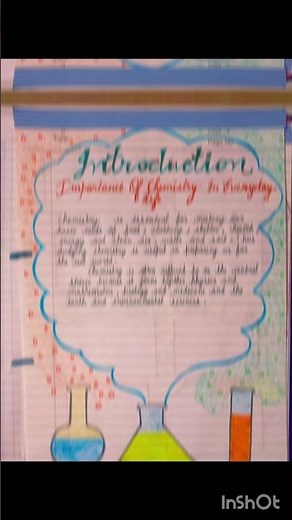 Introduction
Importance Of Chemistry In Everyday
Life
Chemistry is essential for meeting our
basic needs of food, clothing, shelter, health
energy and clean air, water and soil, thus
studying chemistry is useful in preparing us for
the real world.
Chemistry is often referred to as the central
science because it joins together physics and
mathematics, biology and medicine and the
earth and environmental sciences.
InShOt